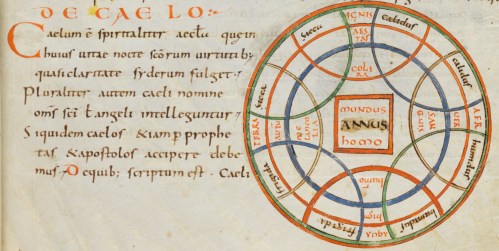 DE CAELO:
Caelum ē spiritaliter aeccła que in
huius uitae nocte scōrum uirtutib;
quasi claritate syderum fulget;
Pluraliter autem caeli nomine
oms̄ scī ł angeli intelleguntur;
Siquidem caelos & iam prophe
tas & apostolos accipere debe
mus; De quib; scriptum est. Caeli
IGNIS
calidus
calidus
AER
humidus
humidus
AQUA
frigida
frigida
TERRA
sicca
sicca
AESTAS
COLERA
VER
SANGUIS
humor
AUTU
MUNDUS
ANNUS
homo